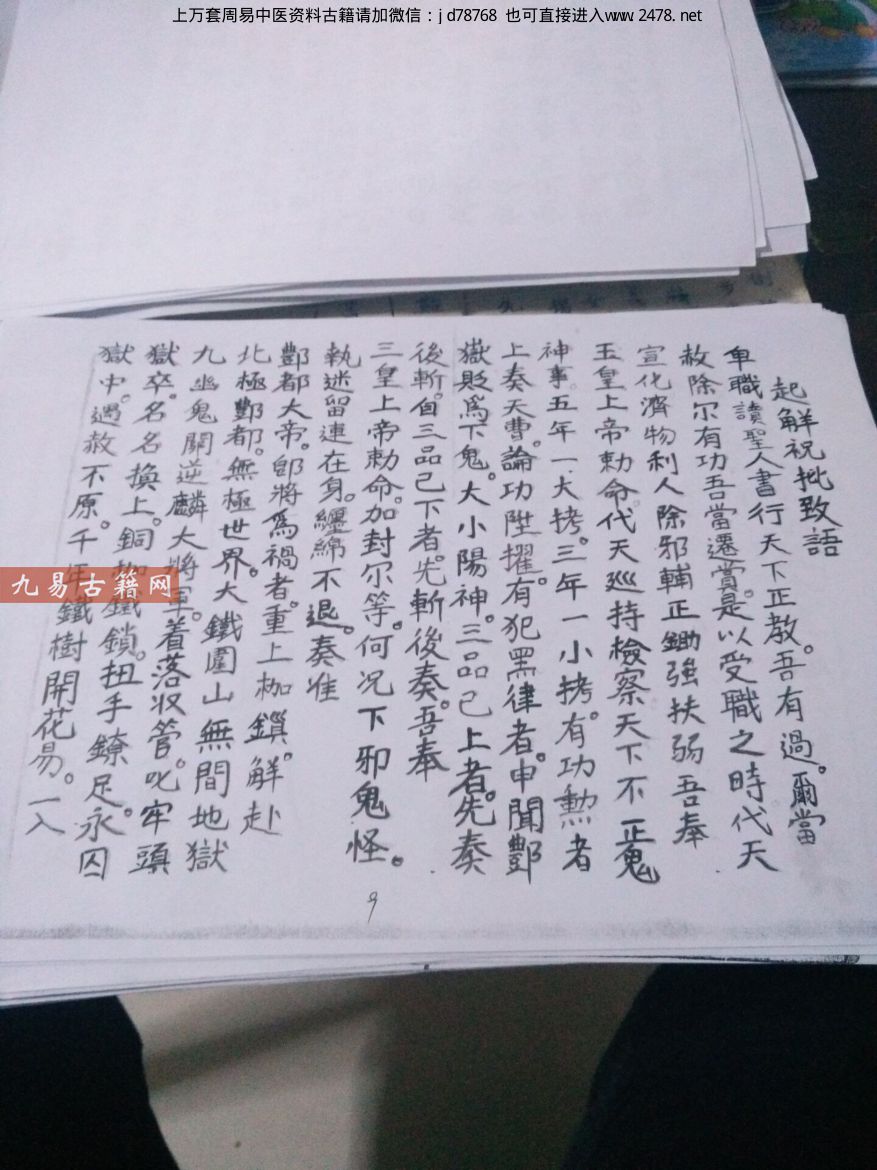 上万套周易中医资料古籍请加微信：jd78768 也可直接进入www.2478.net
起解祝批致語
卑職讀聖人書行天下正教。吾有過。爾當
赦除尔有功吾當遷賞。是以受職之時代天
宣化濟物利人除邪輔正鋤強扶弱吾奉
玉皇上帝勅命代天巡持檢察天下不正鬼
神事。五年一大拷。三年一小拷。有功勲者
上奏天曹。論功陞擢。有犯黑律者。申聞酆
嶽貶爲下鬼。大小陽神。三品已上者。先奏
後斬。自三品已下者。先斬後奏。吾奉
三皇上帝勅命。加封尔等。何况下邪鬼怪。
執迷留連在身。纒綿不退。奏准
酆都大帝。即將爲禍者。重上枷鎖。解赴
北極酆都。無極世界。大鐵圍山無間地獄
九幽鬼關逆麟大將軍。着落收管。叱牢頭
獄卒。名名換上。銅枷鐵鎖。扭手鐐足。永囚
獄中。遇赦不原。千年鐵樹開花易。一入
9
九易古籍网